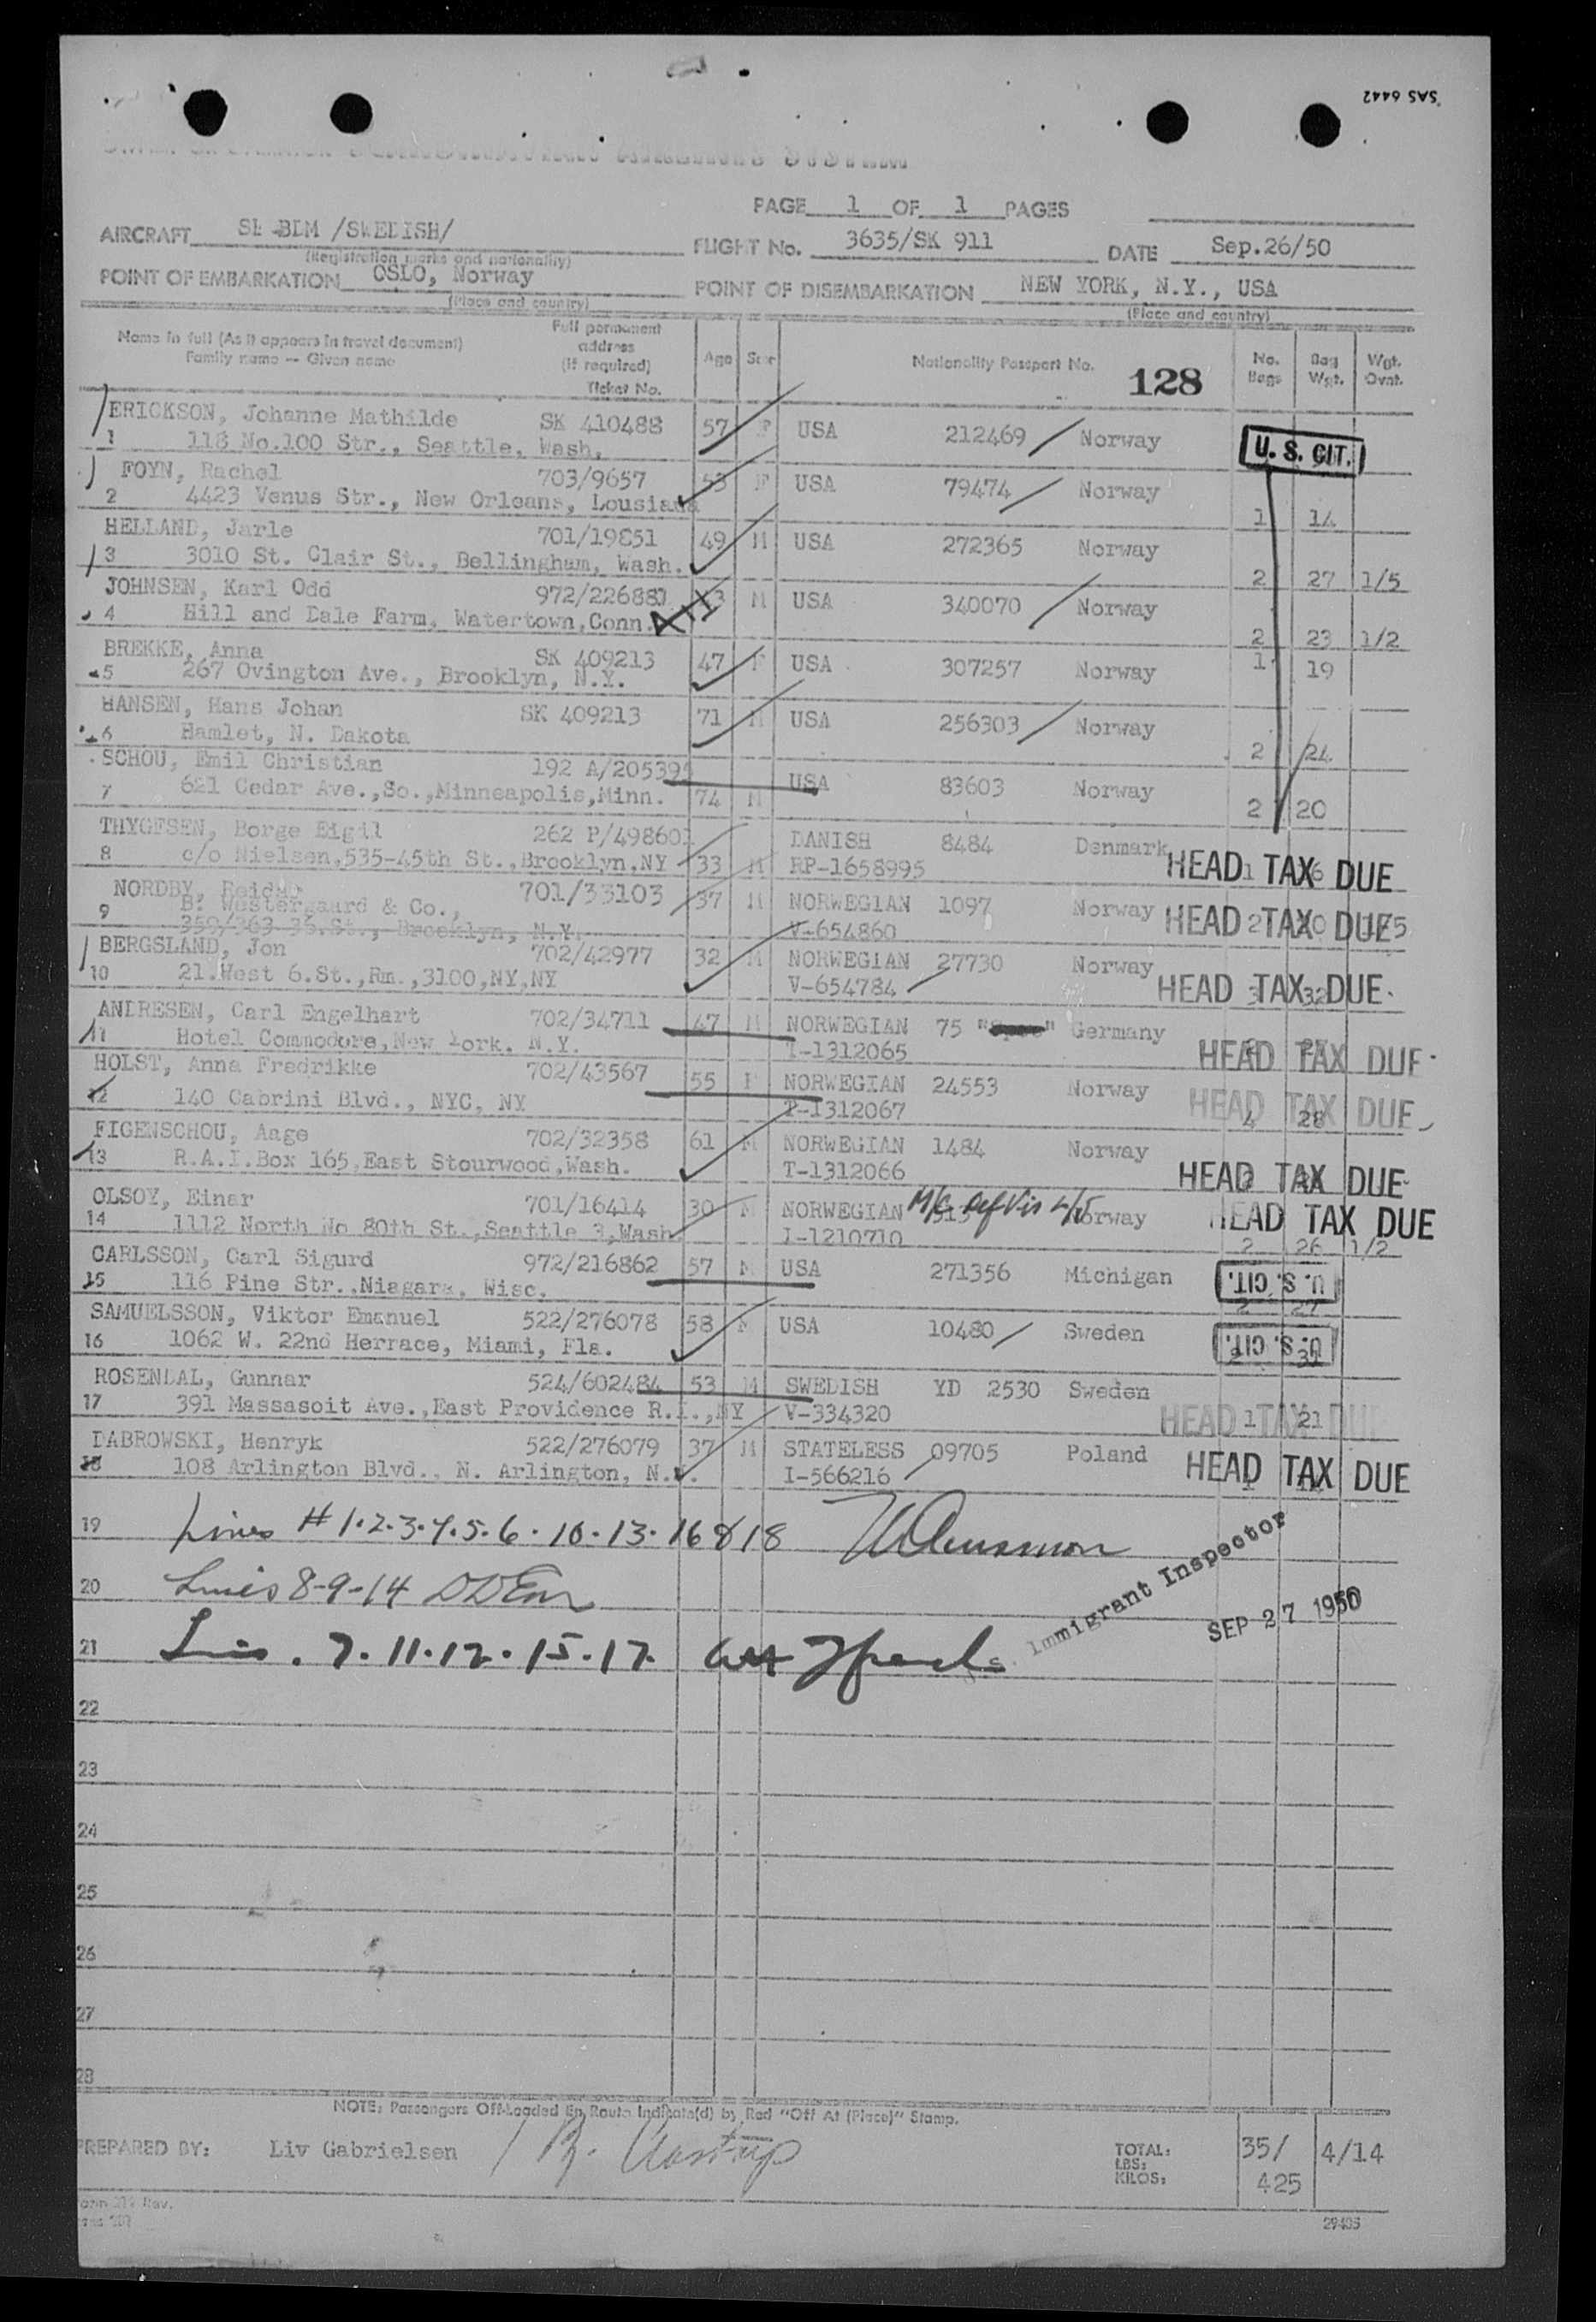 SAS 6442
PAGE 1 OF 1 PAGES
AIRCRAFT SE-BDM /SWEDISH/ FLIGHT No. 3635/SK 911 DATE Sep.26/50
(Registration marks and nationality)
POINT OF EMBARKATION OSLO, Norway POINT OF DISEMBARKATION NEW YORK, N.Y., USA
(Place and country) (Place and country)
Name in full (As it appears in travel document) Family name -- Given name Full permanent address (If required) Ticket No. Age Sex Nationality Passport No. 128 No. Bags Bag Wgt. Wgt. Ovnt.
ERICKSON, Johanne Mathilde SK 410488 57 F USA 212469 Norway U. S. CIT.
1 118 No.100 Str., Seattle, Wash.
FOYN, Rachel 703/9657 53 F USA 79474 Norway
2 4423 Venus Str., New Orleans, Lousiana 1 14
HELLAND, Jarle 701/19851 49 M USA 272365 Norway
3 3010 St. Clair St., Bellingham, Wash. 2 27 1/5
JOHNSEN, Karl Odd 972/226887 M USA 340070 Norway
4 Hill and Dale Farm, Watertown,Conn. 2 23 1/2
BREKKE, Anna SK 409213 47 F USA 307257 Norway 1 19
5 267 Ovington Ave., Brooklyn, N.Y.
HANSEN, Hans Johan SK 409213 71 M USA 256303 Norway
6 Hamlet, N. Dakota 2 24
SCHOU, Emil Christian 192 A/205395 USA 83603 Norway
7 621 Cedar Ave.,So.,Minneapolis,Minn. 74 M 2 20
THYGESEN, Borge Eigil 262 P/498601 DANISH 8484 Denmark
8 c/o Nielsen,535-45th St.,Brooklyn,NY 33 M RP-1658995 HEAD TAX DUE
NORDBY, Reidar 701/33103 37 M NORWEGIAN 1097 Norway HEAD TAX DUE
9 B. Westergaard & Co.,
359/363 36.St., Brooklyn, N.Y. V-654860
BERGSLAND, Jon 702/42977 32 M NORWEGIAN 27730 Norway
10 21.West 6.St.,Rm.,3100,NY,NY V-654784 HEAD TAX DUE
ANDRESEN, Carl Engelhart 702/34711 47 M NORWEGIAN 75 Germany
11 Hotel Commodore,New York. N.Y. T-1312065 HEAD TAX DUE
HOLST, Anna Fredrikke 702/43567 55 F NORWEGIAN 24553 Norway HEAD TAX DUE
12 140 Cabrini Blvd., NYC, NY T-1312067 4 28
FIGENSCHOU, Aage 702/32358 61 M NORWEGIAN 1484 Norway
13 R.A.I.Box 165,East Stourwood,Wash. T-1312066 HEAD TAX DUE
OLSOY, Einar 701/16414 30 M NORWEGIAN Norway HEAD TAX DUE
14 1112 North No 80th St.,Seattle 3,Wash I-1210710 2 26 1/2
CARLSSON, Carl Sigurd 972/216862 57 M USA 271356 Michigan U. S. CIT.
15 116 Pine Str.,Niagara, Wisc. 2 27
SAMUELSSON, Viktor Emanuel 522/276078 58 M USA 10480 Sweden U. S. CIT.
16 1062 W. 22nd Herrace, Miami, Fla.
ROSENDAL, Gunnar 524/602484 53 M SWEDISH YD 2530 Sweden
17 391 Massasoit Ave.,East Providence R.I.,NY V-334320 HEAD TAX DUE 1 21
DABROWSKI, Henryk 522/276079 37 M STATELESS 09705 Poland
18 108 Arlington Blvd., N. Arlington, N.J. I-566216 HEAD TAX DUE
19 Lines # 1.2.3.4.5.6.10.13.16 & 18
20 Lines 8-9-14
Immigrant Inspector SEP 27 1950
21 Lines. 7.11.12.15.17.
22
23
24
25
26
27
28
NOTE: Passengers Off-Loaded En Route Indicate(d) by Red "Off At (Place)" Stamp.
PREPARED BY: Liv Gabrielsen TOTAL: LBS: KILOS: 35/ 425 4/14
29435